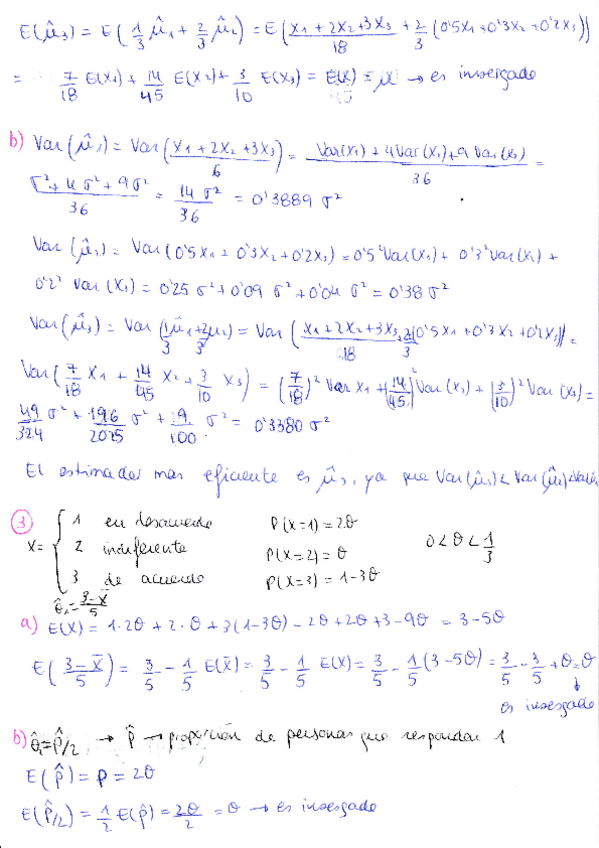 E(μ̂₃) = E(1/3 μ̂₁ + 2/3 μ̂₂) = E((x₁ + 2x₂ + 3x₃)/18 + 2/3 (0'5x₁ + 0'3x₂ + 0'2x₃))
= 7/18 E(x₁) + 14/45 E(x₂) + 3/10 E(x₃) = E(x) = μ → es insesgado
b) Var(μ̂₁) = Var((x₁ + 2x₂ + 3x₃)/6) = (Var(x₁) + 4Var(x₂) + 9 Var(x₃))/36 =
(σ² + 4σ² + 9σ²)/36 = 14σ²/36 = 0'3889 σ²
Var(μ̂₂) = Var(0'5x₁ + 0'3x₂ + 0'2x₃) = 0'5² Var(x₁) + 0'3² Var(x₂) +
0'2² Var(x₃) = 0'25 σ² + 0'09 σ² + 0'04 σ² = 0'38 σ²
Var(μ̂₃) = Var(1/3 μ̂₁ + 2/3 μ₂) = Var((x₁ + 2x₂ + 3x₃)/18 + 2/3 (0'5x₁ + 0'3x₂ + 0'2x₃)) =
Var(7/18 x₁ + 14/45 x₂ + 3/10 x₃) = (7/18)² Var x₁ + (14/45)² Var(x₂) + (3/10)² Var(x₃) =
49/324 σ² + 196/2025 σ² + 9/100 σ² = 0'3380 σ²
El estimador mas eficiente es μ̂₃, ya que Var(μ̂₃) < Var(μ̂₂) <
3
x = { 1 en desacuerdo P(x=1) = 2θ
2 indiferente P(x=2) = θ 0 < θ < 1/3
3 de acuerdo P(x=3) = 1-3θ
θ̂₁ = (3-x̄)/5
a) E(x) = 1·2θ + 2·θ + 3(1-3θ) = 2θ + 2θ + 3 - 9θ = 3-5θ
E((3-x̄)/5) = 3/5 - 1/5 E(x̄) = 3/5 - 1/5 E(x) = 3/5 - 1/5 (3-5θ) = 3/5 - 3/5 + θ = θ
↓
es insesgado
b) θ̂₂ = p̂/2 → p̂ → proporción de personas que responden 1
E(p̂) = p = 2θ
E(p̂/2) = 1/2 E(p̂) = 2θ/2 = θ → es insesgado